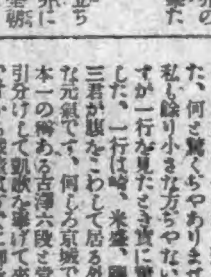 立ち
た、何と驚くぢやありませ
私も餘り小さな方ぢやない
すが一行を見たとき實に驚
した、一行は崎、米盛、
三君が腹をこわして居る外
な元氣です、何しろ京城で
本一の稱ある古澤六段と堂
引分けして凱歌を擧げて來